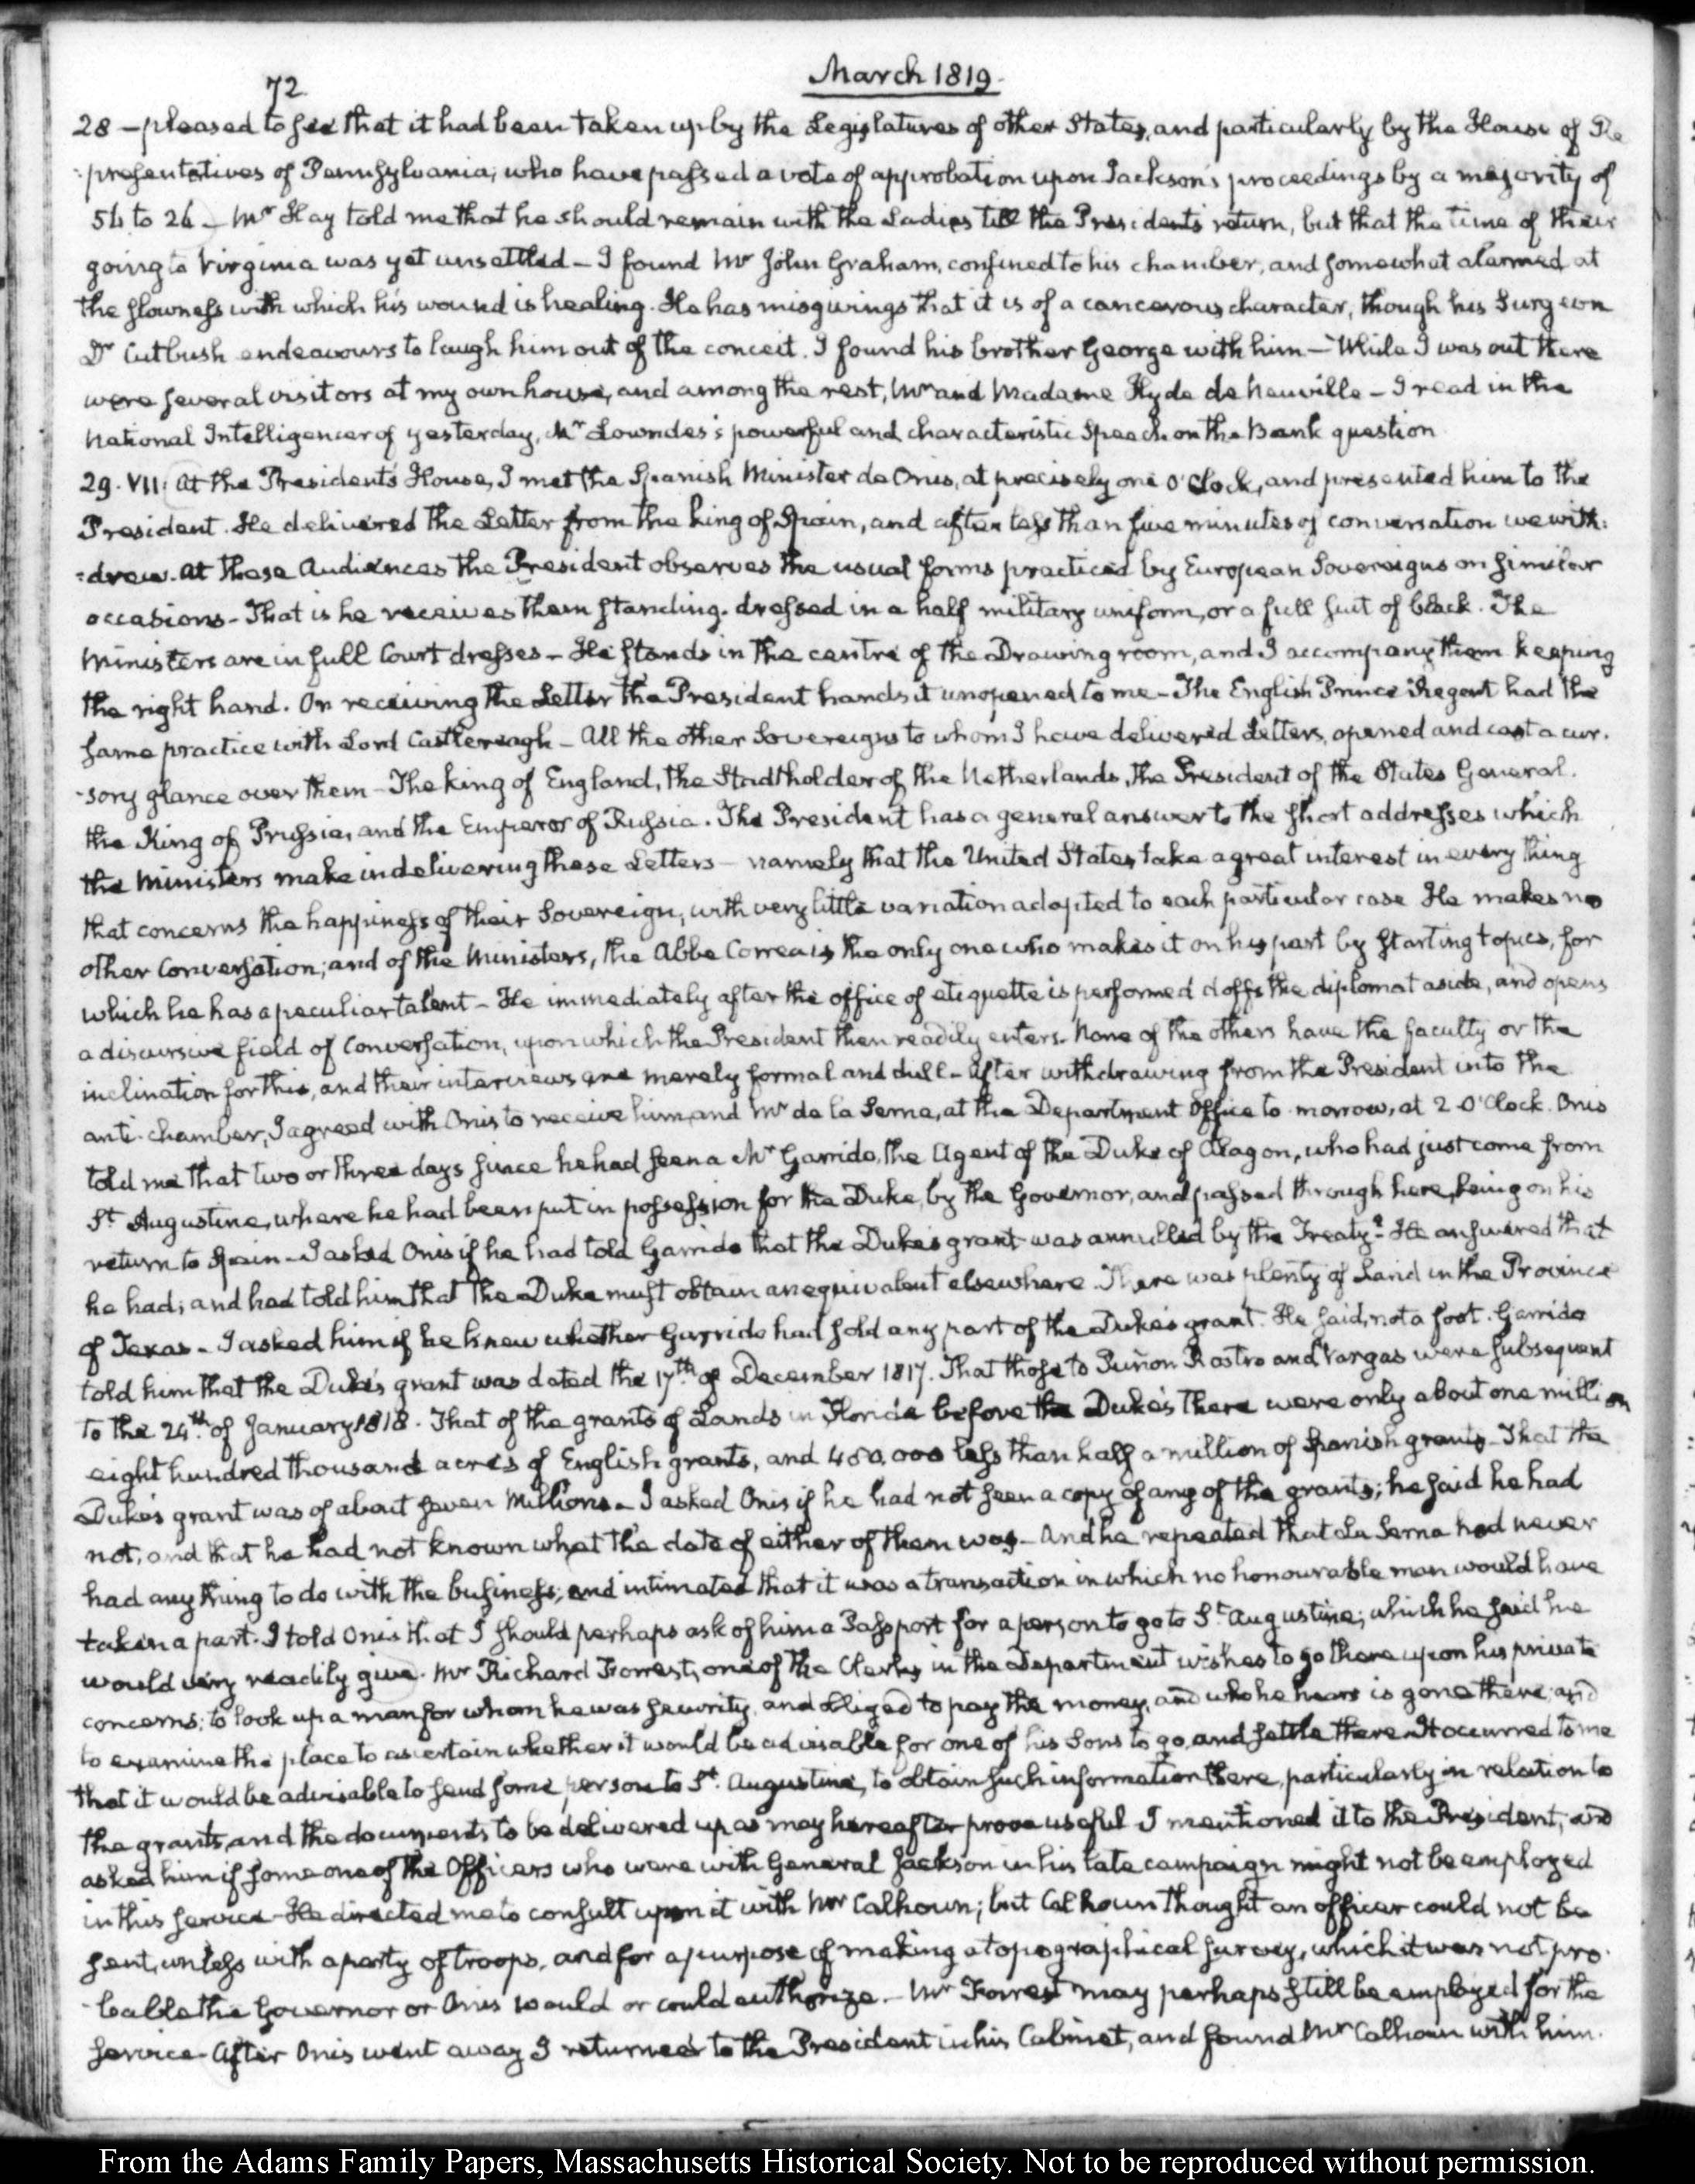 72
March 1819.
28 — pleased to see that it had been taken up by the Legislatures of other States, and particularly by the House of Re
:presentatives of Pennsylvania; who have passed a vote of approbation upon Jackson's proceedings by a majority of
to 26 — Mr Hay told me that he should remain with the Ladies till the President's return, but that the time of their
going to Virginia was yet unsettled — I found Mr John Graham, confined to his chamber, and somewhat alarmed at
the slowness with which his wound is healing. He has misgivings that it is of a cancerous character, though his Surgeon
Dr Cutbush endeavours to laugh him out of the conceit. I found his brother George with him — While I was out there
were several visitors at my own house, and among the rest, Mr and Madame Hyde de Neuville — I read in the
National Intelligencer of yesterday, Mr Lowndes's powerful and characteristic Speech on the Bank question
29. VII. At the President's House, I met the Spanish Minister de Onis, at precisely one O'Clock, and presented him to the
President. He delivered the Letter from the king of Spain, and after less than five minutes of conversation we with:
:drew. At these Audiences the President observes the usual forms practiced by European Sovereigns on similar
occasions — That is he receives them standing. dressed in a half military uniform, or a full suit of black. The
Ministers are in full Court dresses — He stands in the centre of the Drawing room, and I accompany them keeping
the right hand. On receiving the Letter the President hands it unopened to me — The English Prince Regent had the
same practice with Lord Castlereagh — All the other Sovereigns to whom I have delivered Letters, opened and cast a cur-
-sory glance over them — The king of England, the Stadtholder of the Netherlands, the President of the States General.
the King of Prussia, and the Emperor of Russia. The President has a general answer to the short addresses which
the Ministers make in delivering these Letters — namely that the United States take a great interest in every thing
that concerns the happiness of their Sovereign, with very little variation adapted to each particular case He makes no
other Conversation; and of the Ministers, the Abbe Correa is the only one who makes it on his part by starting topics, for
which he has a peculiar talent — He immediately after the office of etiquette is performed doffs the diplomat aside, and opens
a discursive field of Conversation, upon which the President then readily enters. None of the others have the faculty or the
inclination for this, and their interviews are merely formal and dull — After withdrawing from the President into the
anti-chamber, I agreed with Onis to receive him, and Mr de la Serna, at the Department Office to-morrow, at 2 O'Clock. Onis
told me that two or three days since he had seen a Mr Garrido, the Agent of the Duke of Alagon, who had just come from
St Augustine, where he had been put in possession for the Duke, by the Governor, and passed through here, being on his
return to Spain — I asked Onis if he had told Garrido that the Duke's grant was annulled by the Treaty? He answered that
he had; and had told him that the Duke must obtain an equivalent elsewhere. There was plenty of Land in the Province
of Texas — I asked him if he knew whether Garrido had sold any part of the Duke's grant. He said, not a foot. Garrido
told him that the Duke's grant was dated the 17th of December 1817. That those to Puñon Rostro and Vargas were subsequent
to the 24th of January 1818. That of the grants of Lands in Florida before the Duke's there were only about one million
eight hundred thousand acres of English grants, and 400.000 less than half a million of Spanish grants — That the
Duke's grant was of about seven Millions — I asked Onis if he had not seen a copy of any of the grants; he said he had
not; and that he had not known what the date of either of them was — And he repeated that La Serna had never
had any thing to do with the business; and intimated that it was a transaction in which no honourable man would have
taken a part. I told Onis that I should perhaps ask of him a Passport for a person to go to St Augustine; which he said he
would very readily give. Mr Richard Forrest, one of the Clerks in the Department wishes to go there upon his private
concerns; to look up a man for whom he was security, and obliged to pay the money, and who he hears is gone there; and
to examine the place to ascertain whether it would be advisable for one of his Sons to go, and settle there. It occurred to me
that it would be advisable to send some person to St. Augustine, to obtain such information there, particularly in relation to
the grants, and the documents to be delivered up as may hereafter prove useful I mentioned it to the President; and
asked him if some one of the Officers who were with General Jackson in his late campaign might not be employed
in this service — He directed me to consult upon it with Mr Calhoun; but Calhoun thought an officer could not be
sent, unless with a party of troops, and for a purpose of making a topographical survey, which it was not pro-
-bable the Governor or Onis would or could authorize. — Mr Forrest may perhaps still be employed for the
service — After Onis went away I returned to the President in his Cabinet, and found Mr Calhoun with him.
From the Adams Family Papers, Massachusetts Historical Society. Not to be reproduced without permission.